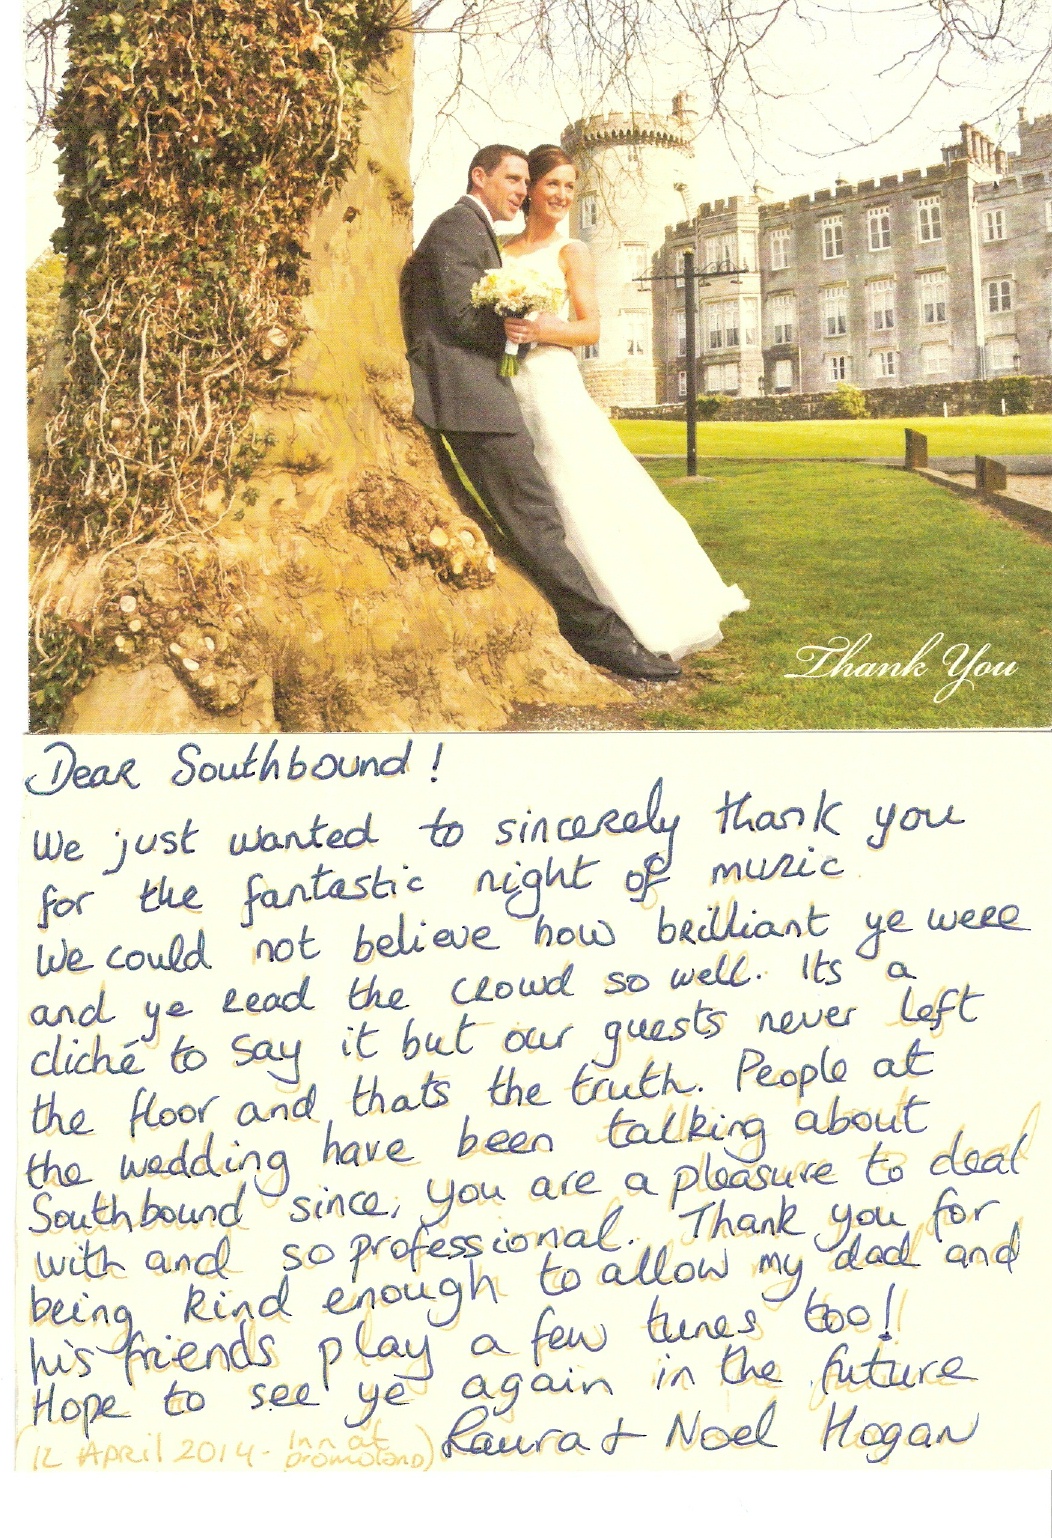 Thank You
Dear Southbound!
We just wanted to sincerely thank you
for the fantastic night of music.
We could not believe how brilliant ye were
and ye read the crowd so well. Its a
cliché to say it but our guests never left
the floor and thats the truth. People at
the wedding have been talking about
Southbound since, you are a pleasure to deal
with and so professional. Thank you for
being kind enough to allow my dad and
his friends play a few tunes too!
Hope to see ye again in the future
Laura + Noel Hogan
(12 April 2014 - Inn at
Dromoland)